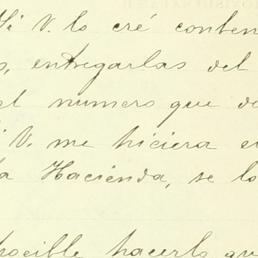 Si V. lo cré conten
s, entregarlas del
el numero que de
i V. me hiciera e
la Hacienda, se lo
pocible hacerlo qu